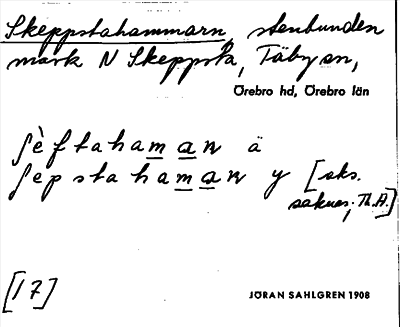 Skeppstahammarn, stenbunden
mark N Skeppsta, Täby sn,
Örebro hd, Örebro län
ʃèftahaman ä
ʃepstahaman y [sks.
saknas; Th.A.]
[17]
JÖRAN SAHLGREN 1908